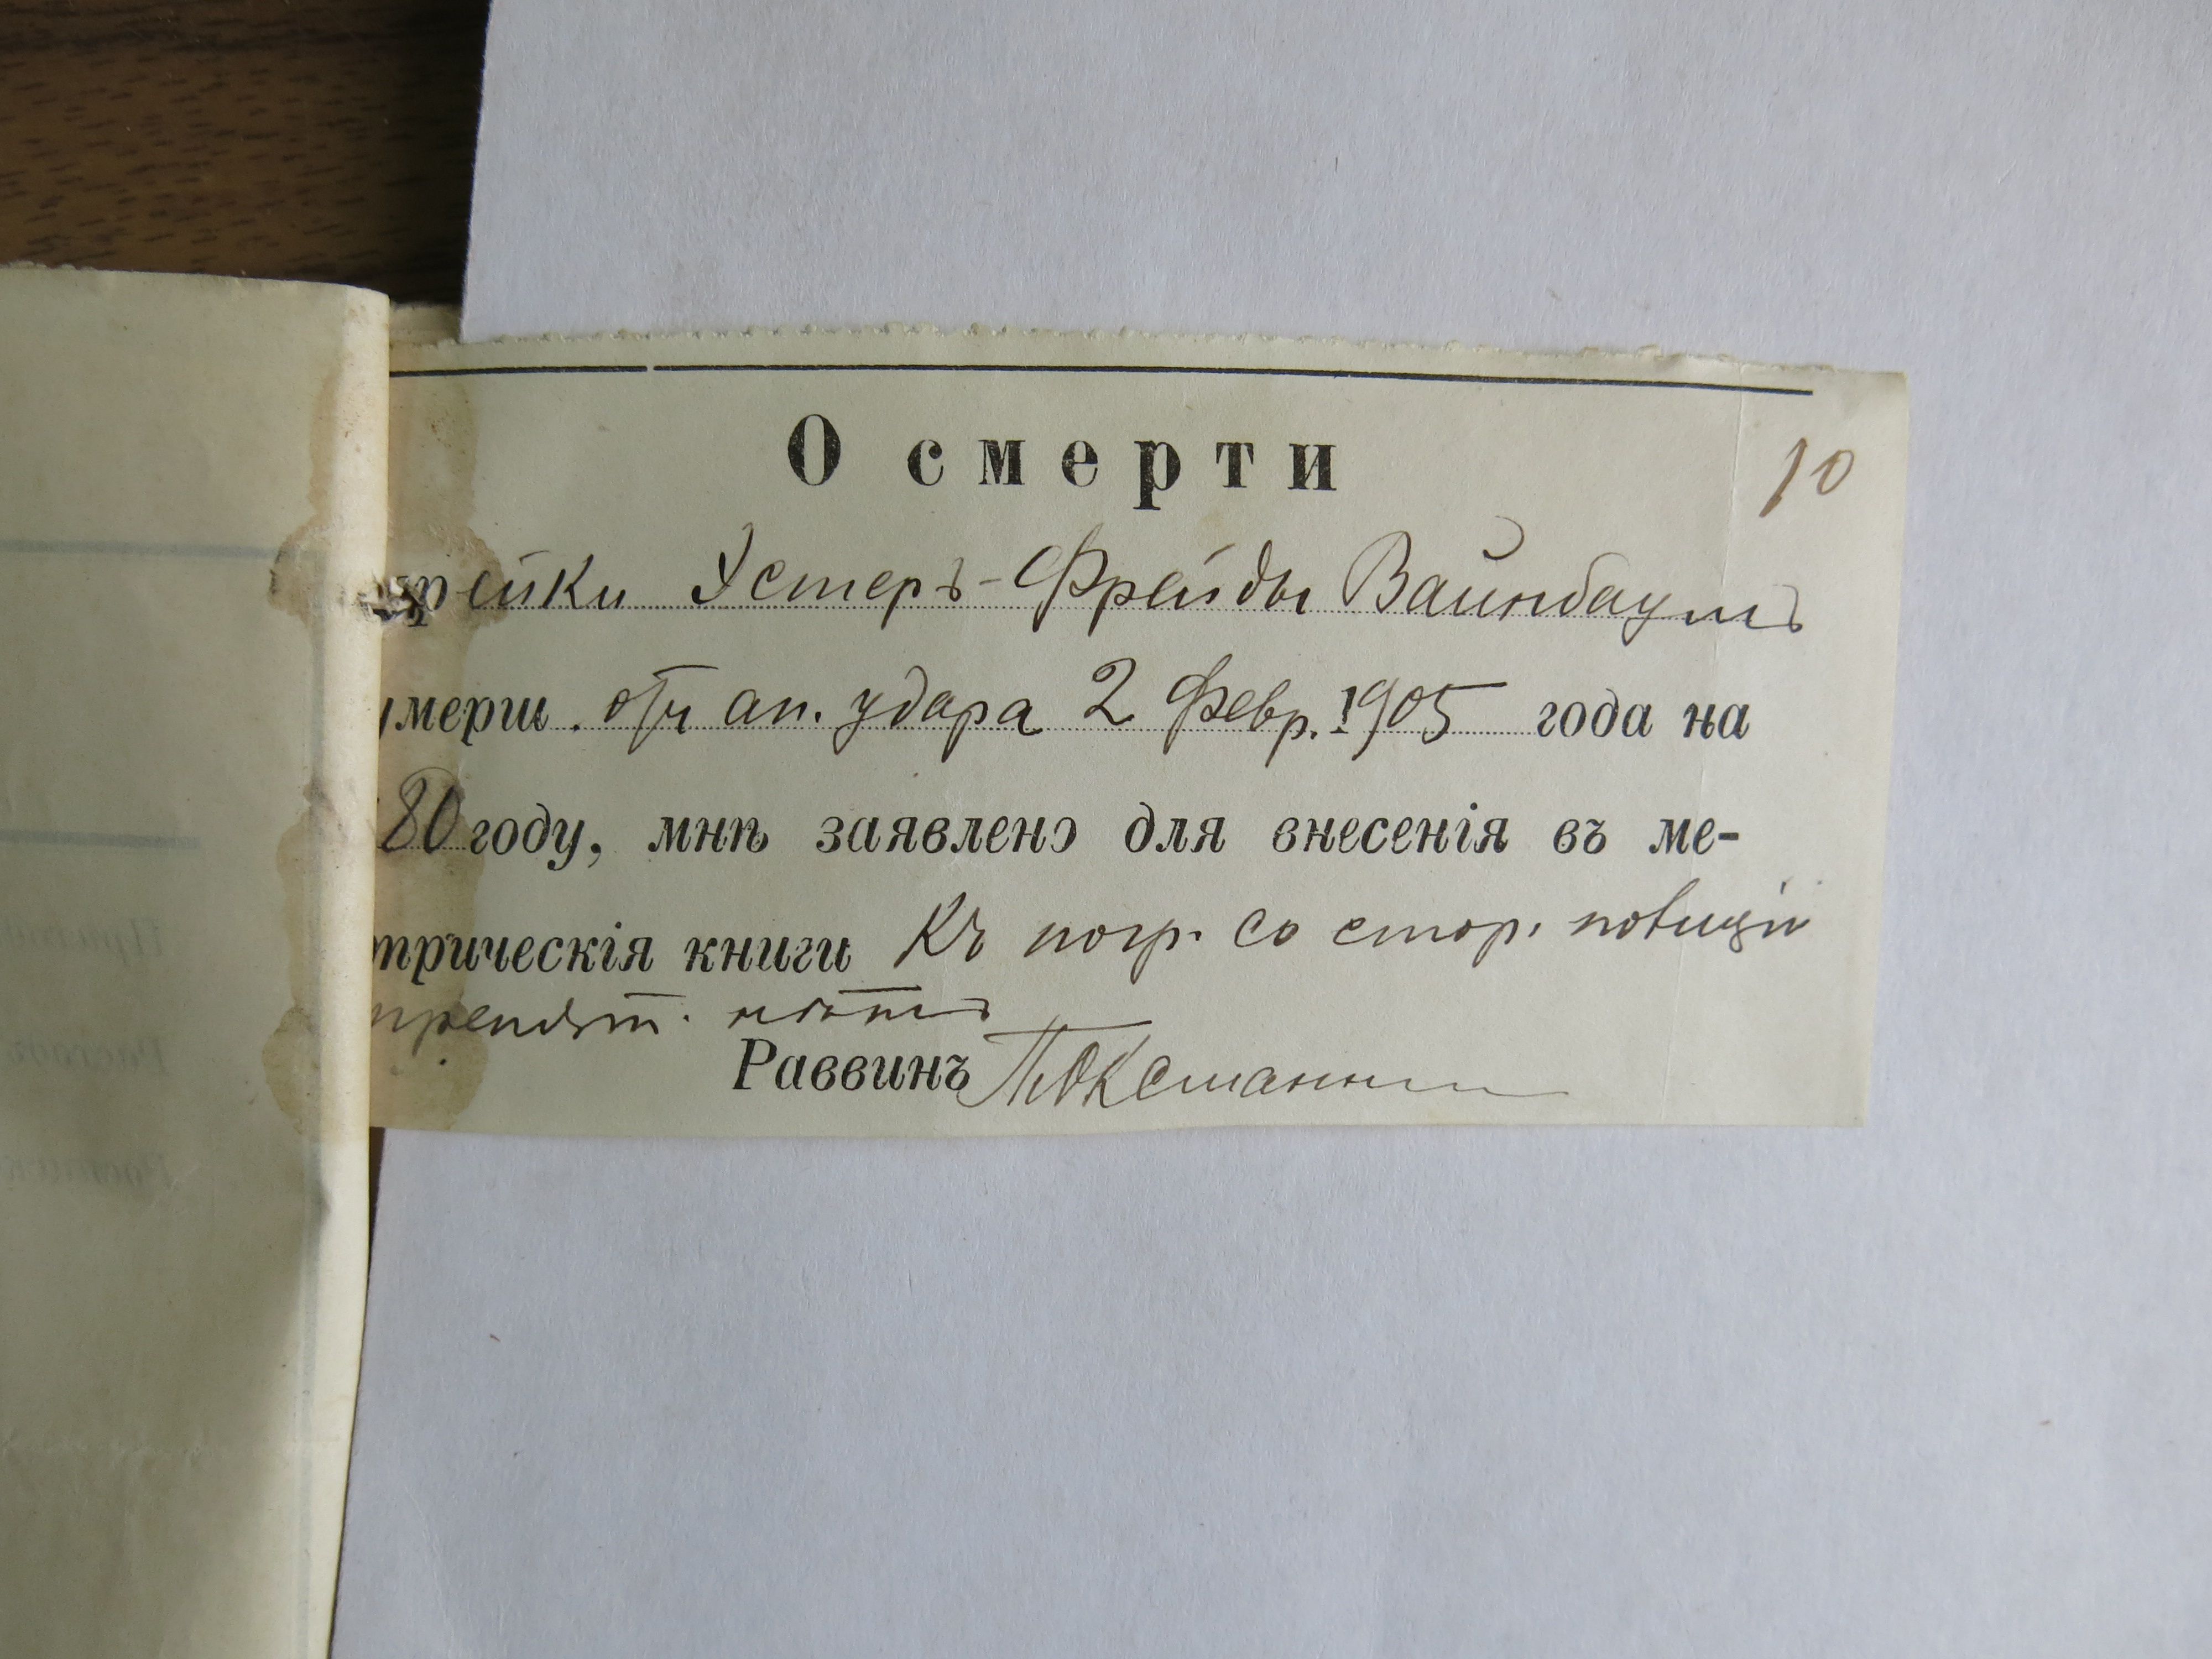 О смерти
10
рейки Устеръ-Фрейды Вайнбаумъ
умерш. отъ ап. удара 2 февр. 1905 года на
80 году, мнѣ заявлено для внесенія въ ме-
трическія книги Къ погр. со стор. полиціи
препят. нѣтъ
Раввинъ